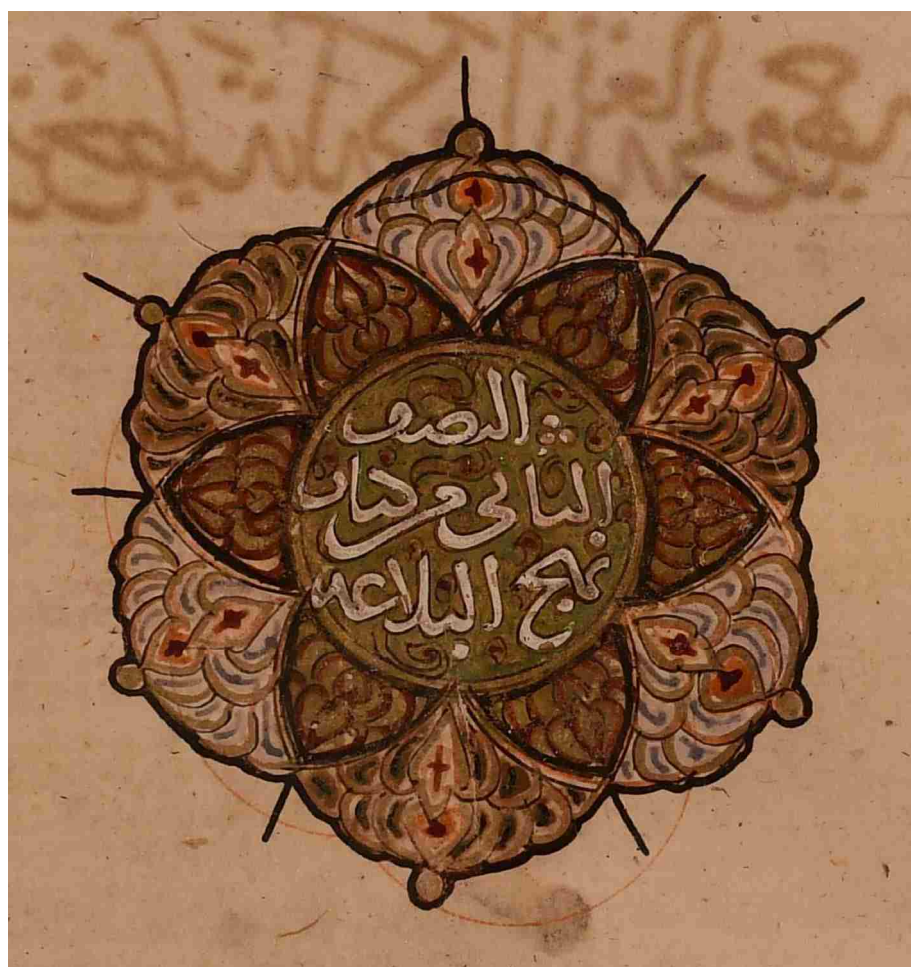 النصف
الثاني من كتاب
نهج البلاغه